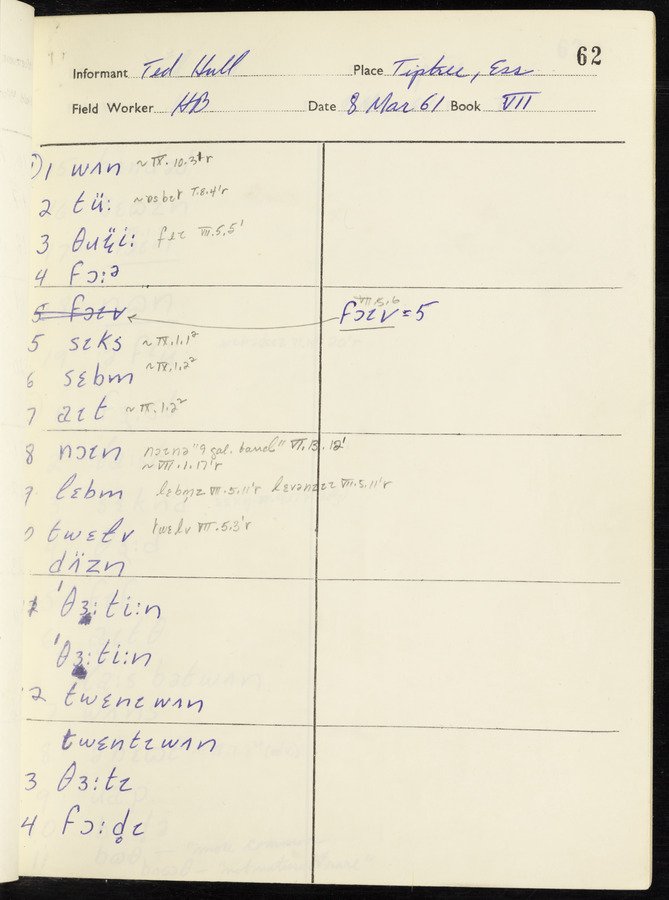 62
Informant Ted Hull Place Tiptree, Ess
Field Worker HB Date 8 Mar 61 Book VII
1 wʌn ~ IX.10.3'r
2 tü: T.8.4'r
3 VII.5.5'
4 fɔ:ə
5 fɔɪv fɔɪv = 5 VII.5.6
5 sɪks ~ IX.1.1²
6 sɛbm ~ IX.1.2²
7 aɪt ~ IX.1.2²
8 nɔɪn nɔɪnə "9 gal. barrel" VI.13.12'
~ VII.1.17'r
9 lɛbm VII.5.11'r VII.5.11'r
twɛɫv twelv VII.5.3'r
dʌ̈zn
ˈθɜ:ti:n
ˈθɜ:ti:n
2 twɛnɪwʌn
twɛntɪwʌn
3 θɜ:tɪ
4 fɔ:d̥ɪ